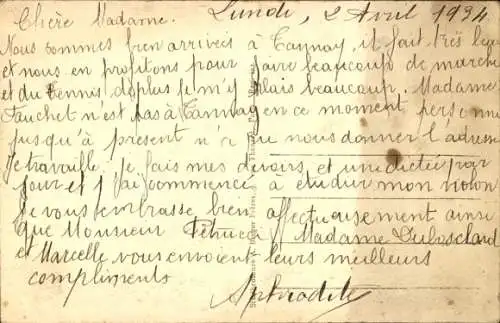 Chère Madame. Lundi, 2 Avril 1934
Nous sommes bien arrivées à Tannay, il fait très beau
et nous en profitons pour faire beaucoup de marche
et du tennis de plus je m'y plais beaucoup. Madame
Fauchet n'est pas à Tannay en ce moment personne
jusqu'à présent n'a su nous donner l'adresse
Je travaille. Je fais mes devoirs et une dictée par
jour et j'ai commencé à étudier mon violon
Je vous embrasse bien affectueusement ainsi
que Monsieur Madame
et Marcelle vous envoient leurs meilleurs
compliments